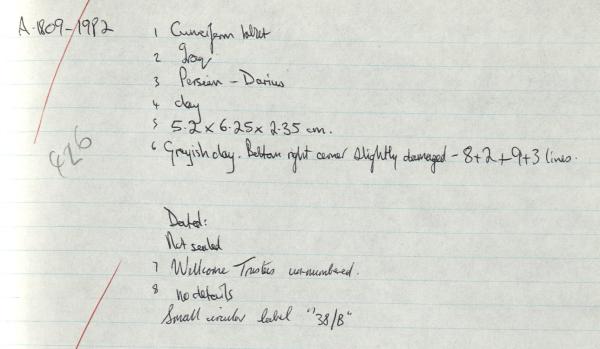 A.1809-1982
1 Cuneiform tablet
2 Iraq
3 Persian - Darius
4 clay
5 5.2 x 6.25 x 2.35 cm.
6 Greyish clay. Bottom right corner slightly damaged - 8+2+9+3 lines.
426
Dated:
Not sealed
7 Wellcome Trustees un-numbered.
8 no details
Small circular label "38/B"